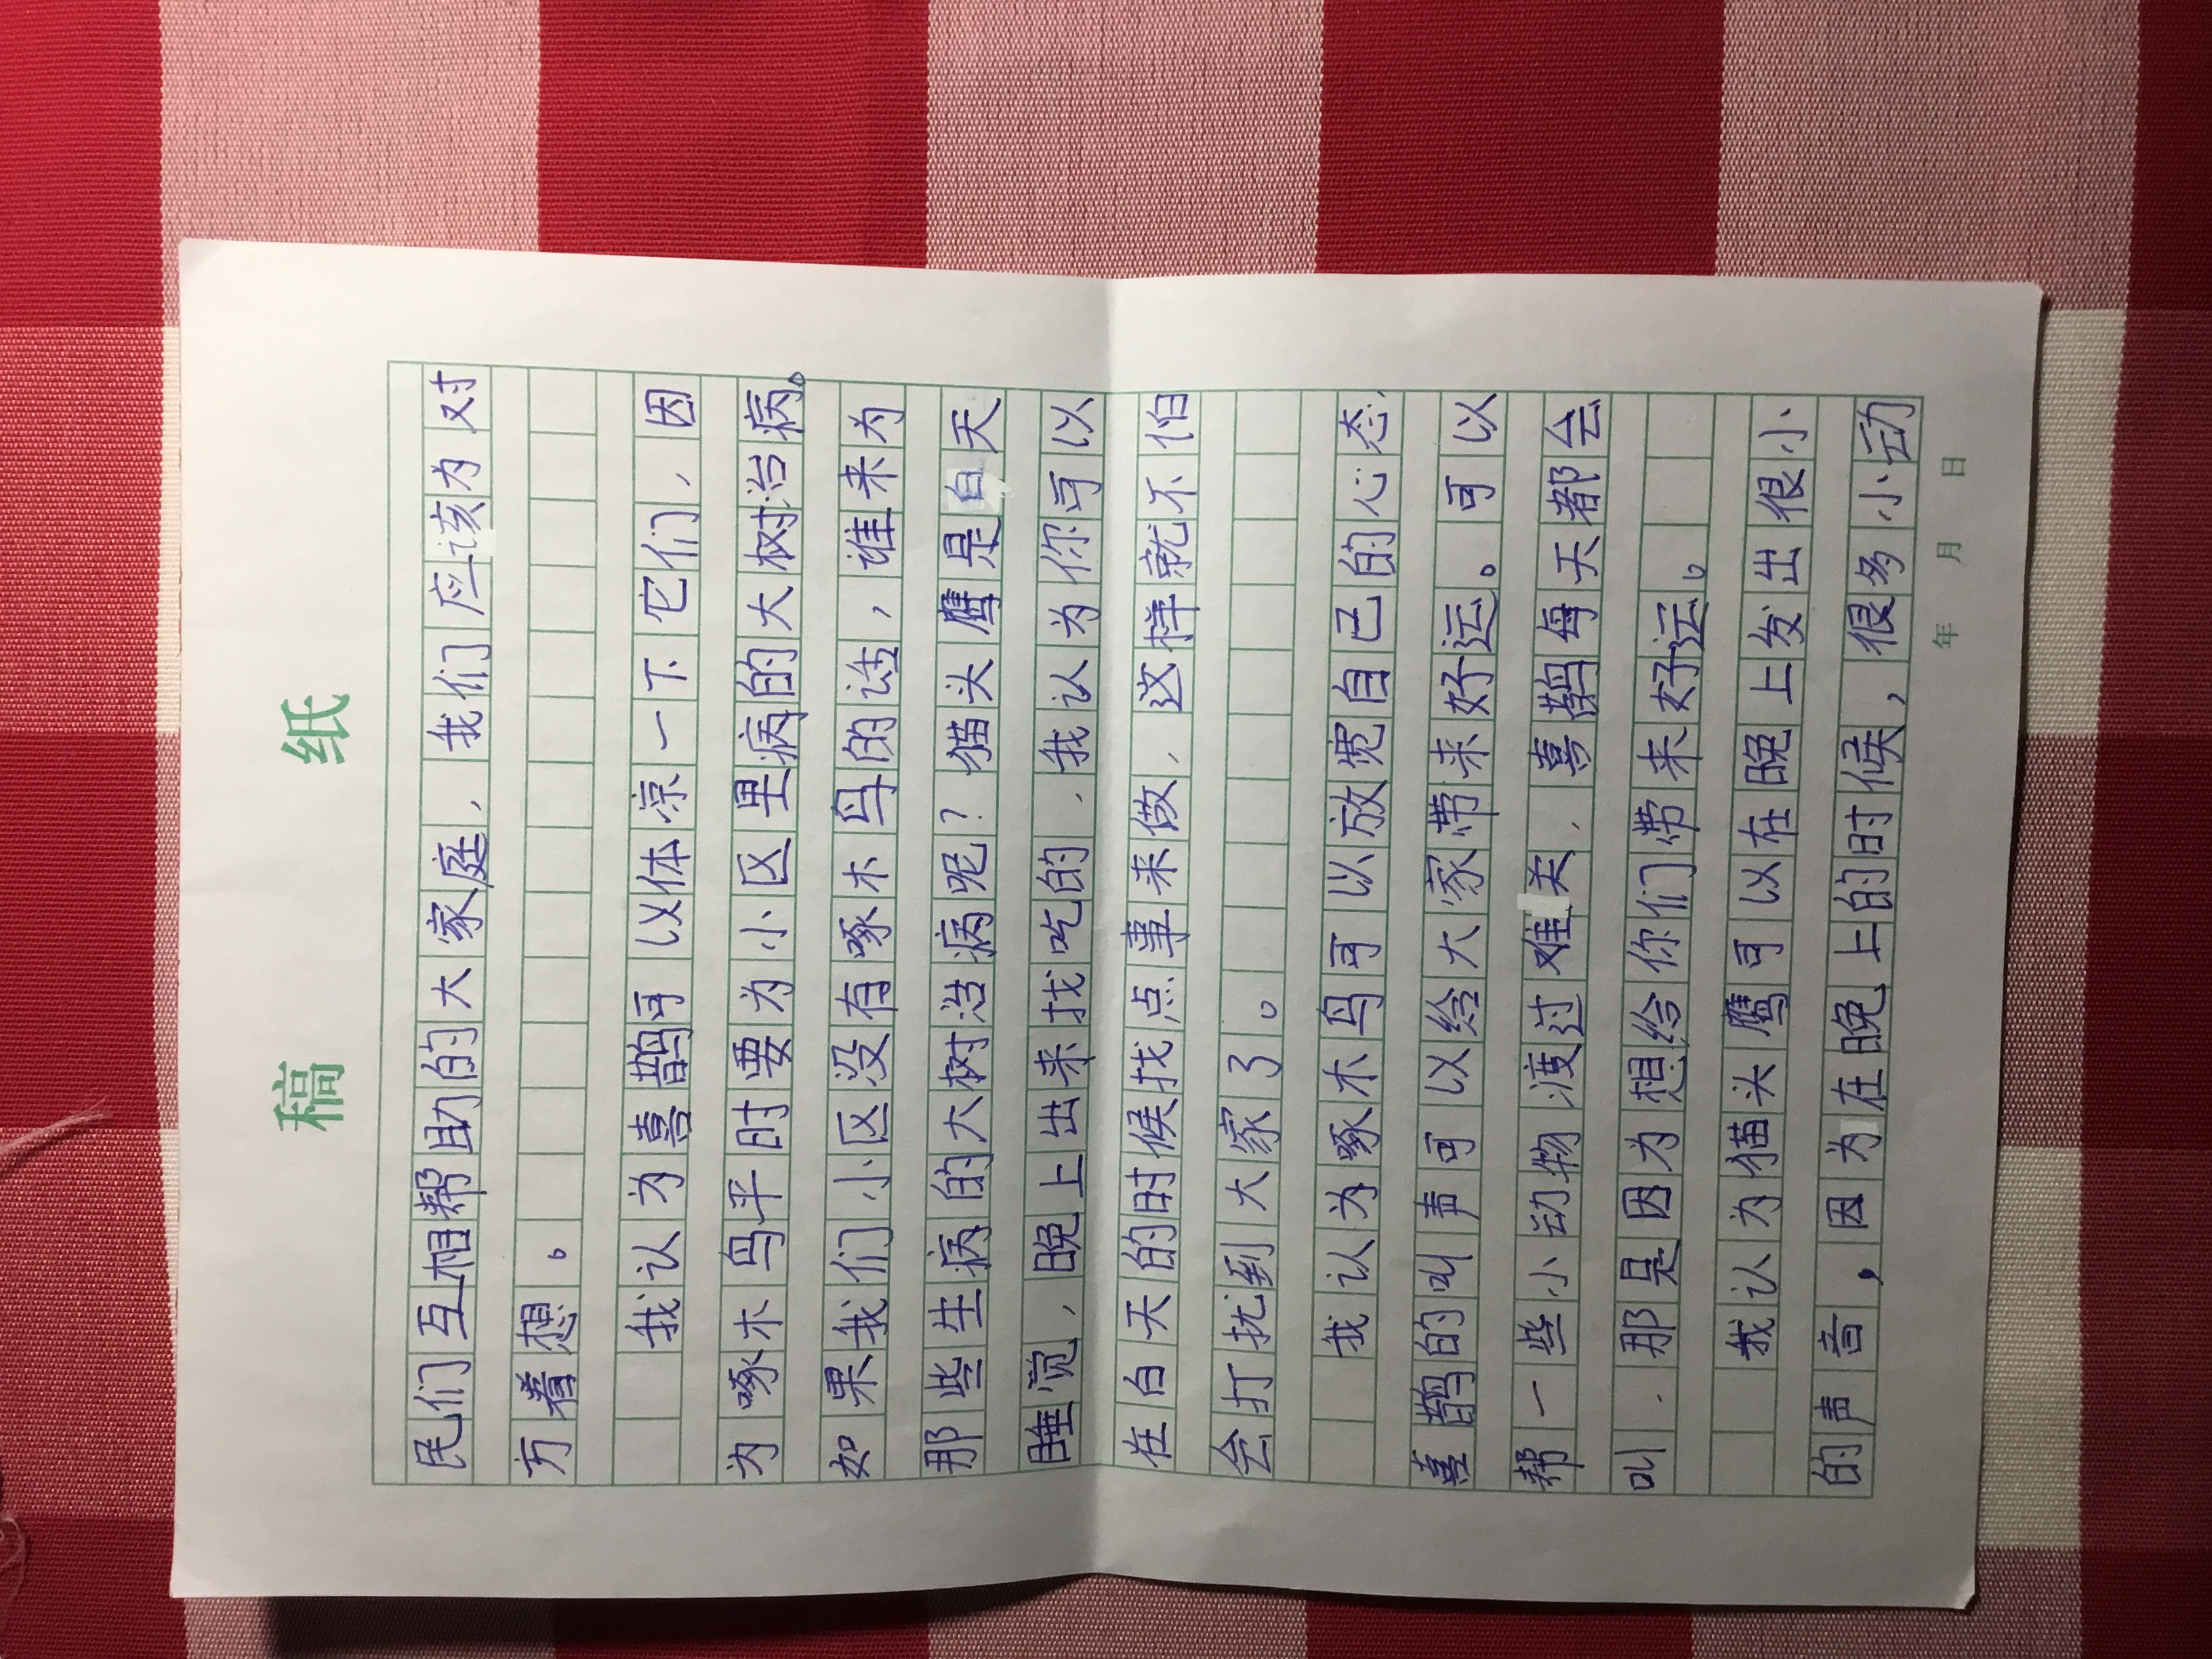 稿 纸
民们互相帮助的大家庭，我们应该为对
方着想。
我认为喜鹊可以体凉一下它们，因
为啄木鸟平时要为小区里病的大树治病。
如果我们小区没有啄木鸟的话，谁来为
那些生病的大树治病呢？猫头鹰是白天
睡觉，晚上出来找吃的，我认为你可以
在白天的时候找点事来做，这样就不怕
会打扰到大家了。
我认为啄木鸟可以放宽自己的心态，
喜鹊的叫声可以给大家带来好运。可以
帮一些小动物渡过难关，喜鹊每天都会
叫，那是因为想给你们带来好运。
我认为猫头鹰可以在晚上发出很小
的声音，因为在晚上的时候，很多小动
年 月 日